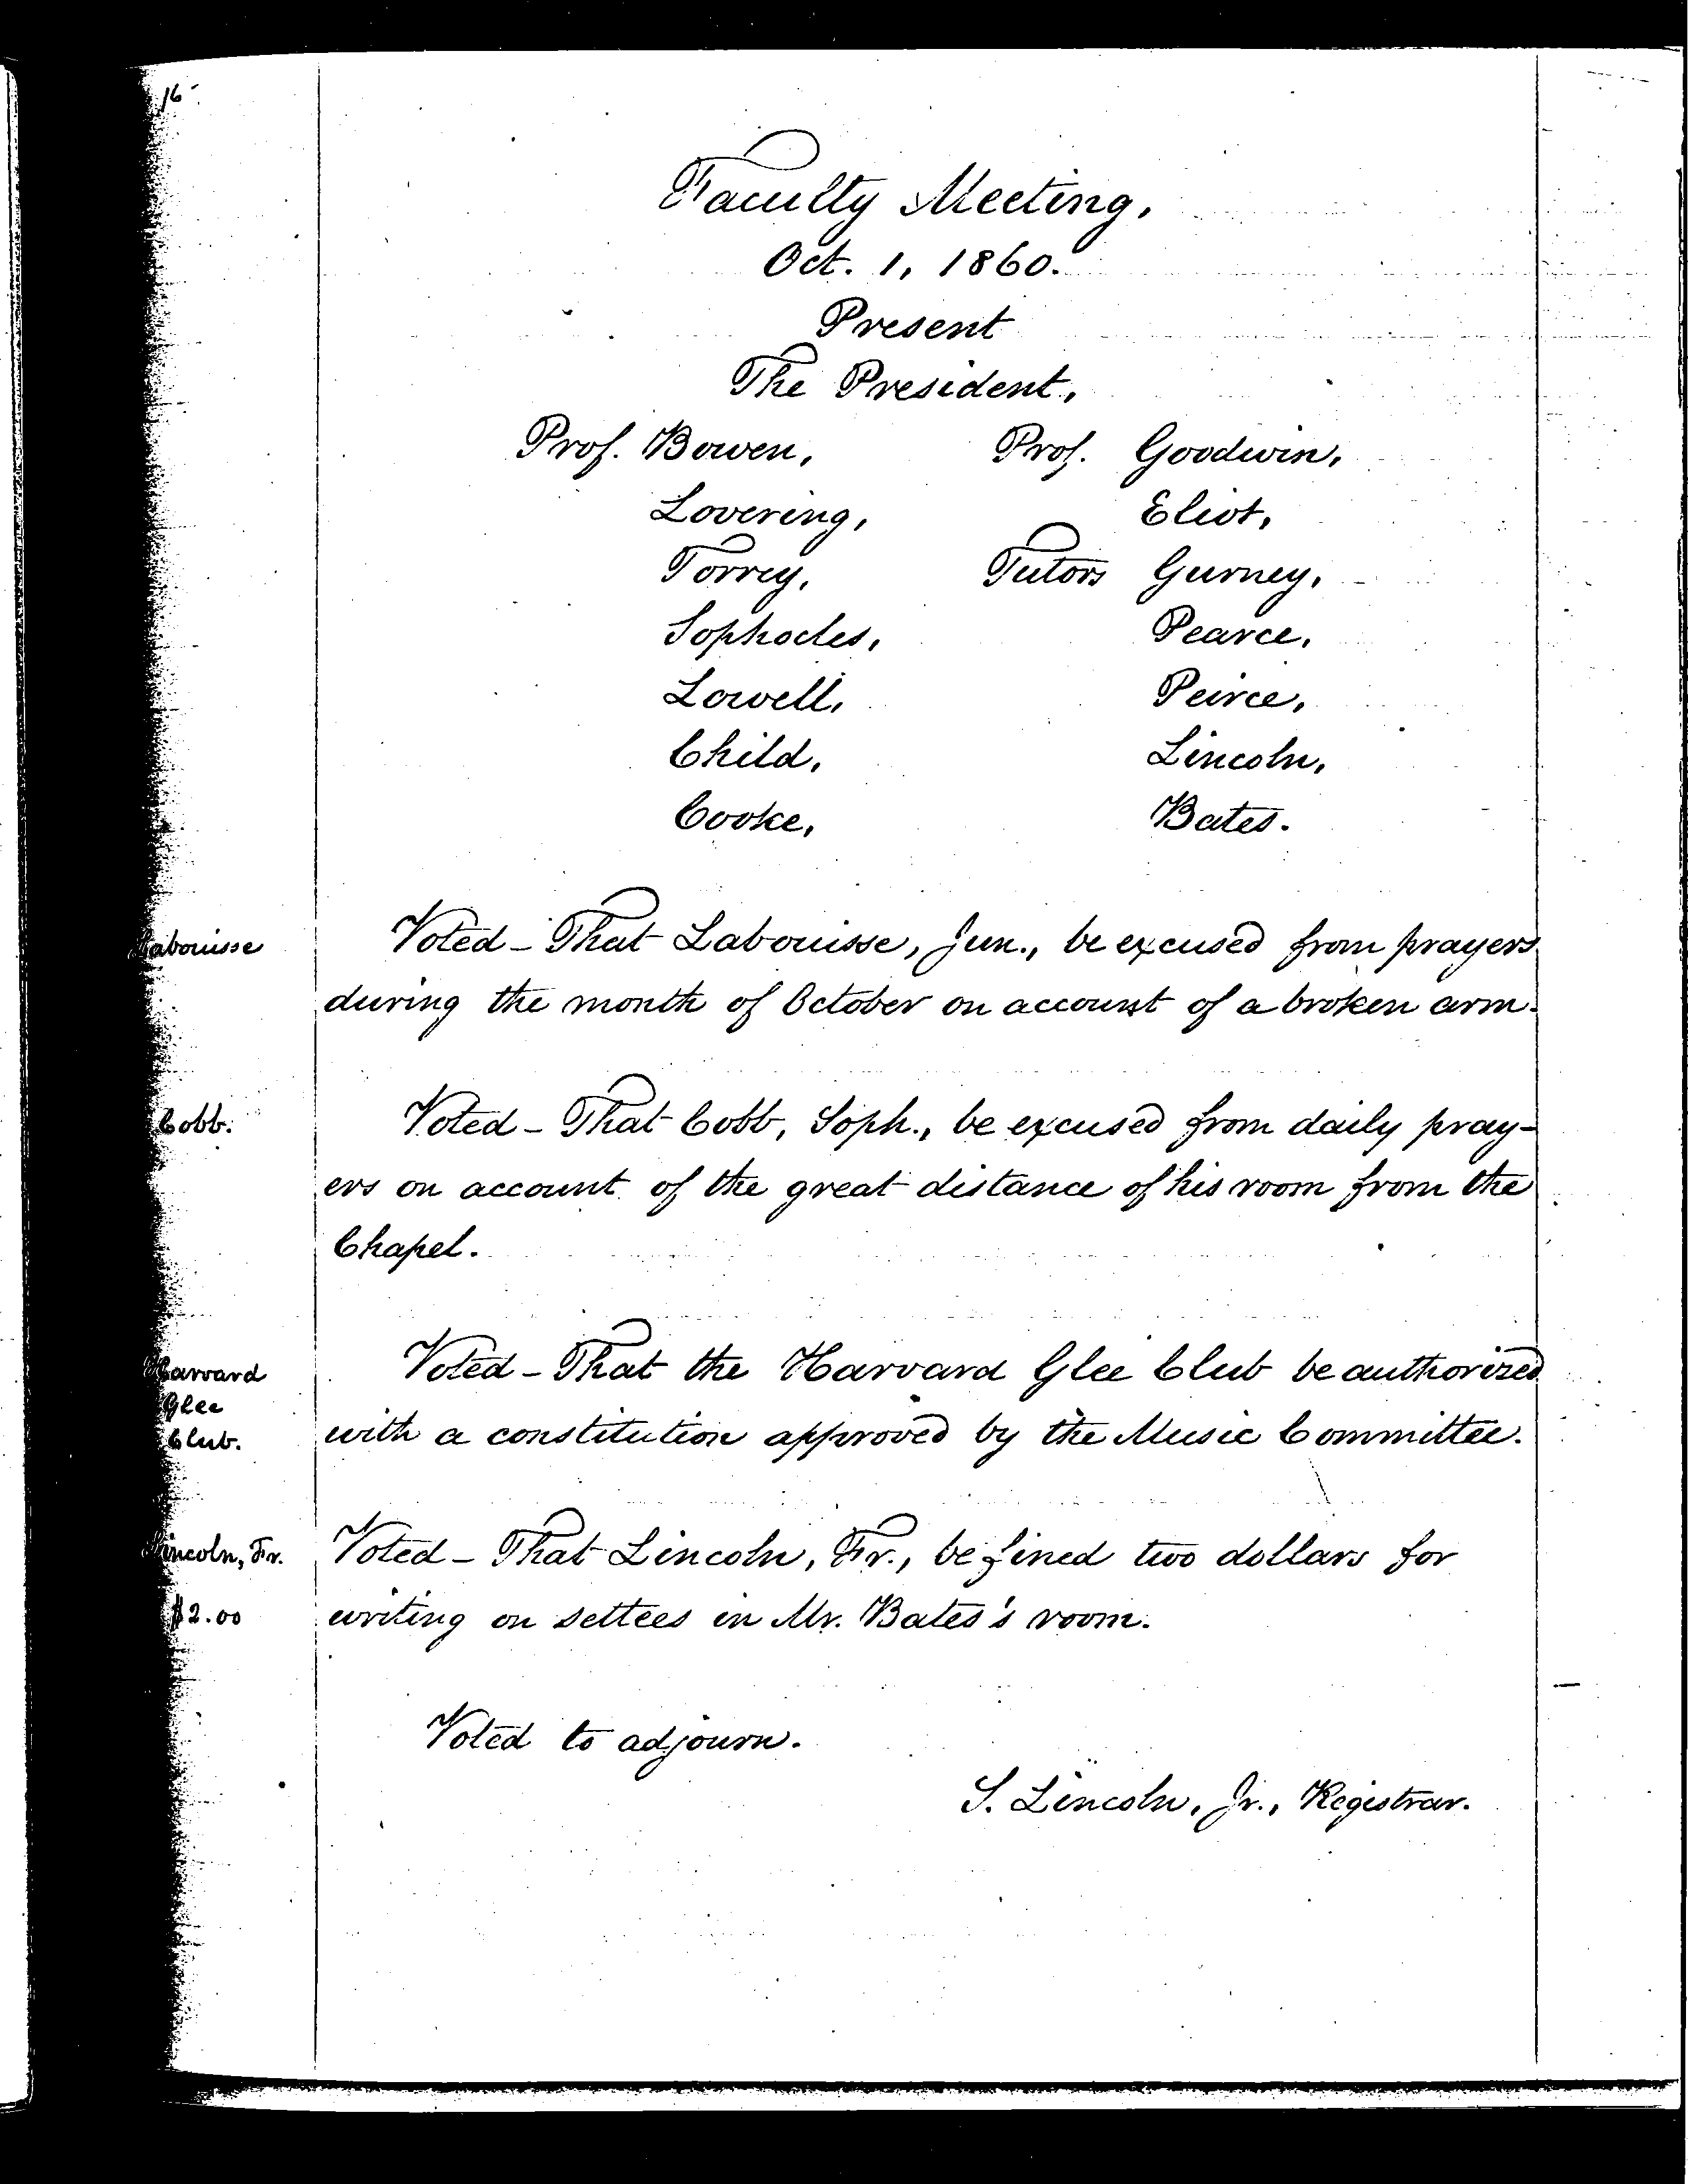 16
Faculty Meeting,
Oct. 1, 1860.
Present
The President,
Prof. Bowen, Prof. Goodwin,
Lovering, Eliot,
Torrey, Tutors Gurney,
Sophocles, Pearce,
Lowell, Peirce,
Child, Lincoln,
Cooke, Bates.
Labouisse
Voted - That Labouisse, Jun., be excused from prayers
during the month of October on account of a broken arm.
Cobb.
Voted - That Cobb, Soph., be excused from daily pray-
ers on account of the great distance of his room from the
Chapel.
Harvard
Glee
Club.
Voted - That the Harvard Glee Club be authorized
with a constitution approved by the Music Committee.
Lincoln, Fr.
$2.00
Voted - That Lincoln, Fr., be fined two dollars for
writing on settees in Mr. Bates's room.
Voted to adjourn.
S. Lincoln, Jr., Registrar.